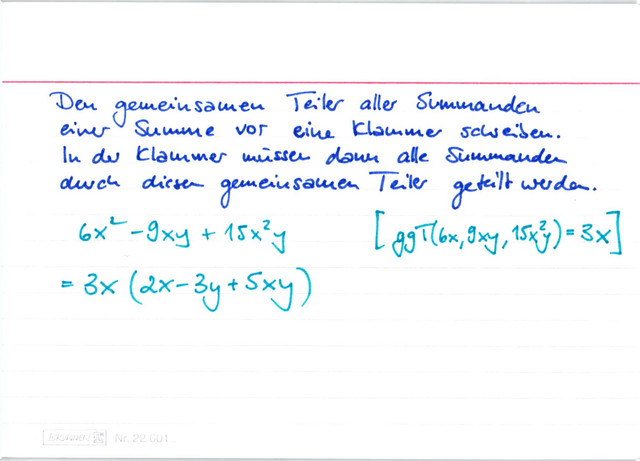 Den gemeinsamen Teiler aller Summanden
einer Summe vor eine Klammer schreiben.
In der Klammer müssen dann alle Summanden
durch diesen gemeinsamen Teiler geteilt werden.
6x² - 9xy + 15x²y [ggT(6x, 9xy, 15x²y) = 3x]
= 3x (2x - 3y + 5xy)
BRUNNEN Nr. 22 601